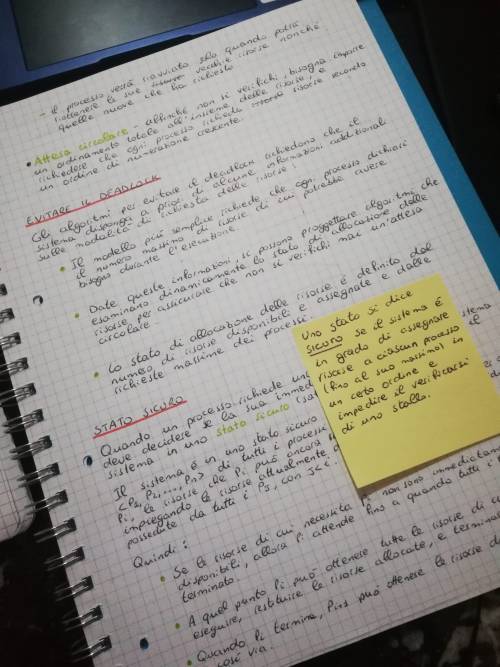 - Il processo verrà riavviato solo quando potrà
riottenere le sue vecchie risorse nonché
quelle nuove che ha richiesto
• Attesa circolare - affinché non si verifichi, bisogna imporre
un ordinamento totale all'insieme delle risorse, e
richiedere che ogni processo richieda risorse secondo
un ordine di numerazione crescente.
EVITARE IL DEADLOCK
Gli algoritmi per evitare il deadlock richiedono che il
sistema disponga a priori di alcune informazioni addizionali
sulle modalità di richiesta delle risorse:
• Il modello più semplice richiede che ogni processo dichiari
il numero massimo di risorse di cui potrebbe avere
bisogno durante l'esecuzione
• Date queste informazioni, si possono progettare algoritmi che
esaminano dinamicamente lo stato di allocazione delle
risorse per assicurare che non si verifichi mai un'attesa
circolare
• Lo stato di allocazione delle risorse è definito dal
numero di risorse disponibili e assegnate e dalle
richieste massime dei processi.
STATO SICURO
Quando un processo richiede una
deve decidere se la sua immed
sistema in uno stato sicuro (sa
Il sistema è in uno stato sicuro
<P1, P2, ..., Pn> di tutti i process
Pi, le risorse che Pi può ancora
impiegando le risorse attualmente
possedute da tutti i Pj, con j<i.
Quindi:
• Se le risorse di cui necessita Pi non sono immediatam
disponibili, allora Pi attende fino a quando tutti i
terminato.
• A quel punto Pi può ottenere tutte le risorse di cu
eseguire, restituire le risorse allocate, e termina
• Quando Pi termina, Pi+1 può ottenere le risorse d
così via.
Uno stato si dice
sicuro se il sistema è
in grado di assegnare
risorse a ciascun processo
(fino al suo massimo) in
un certo ordine e
impedire il verificarsi
di uno stallo.